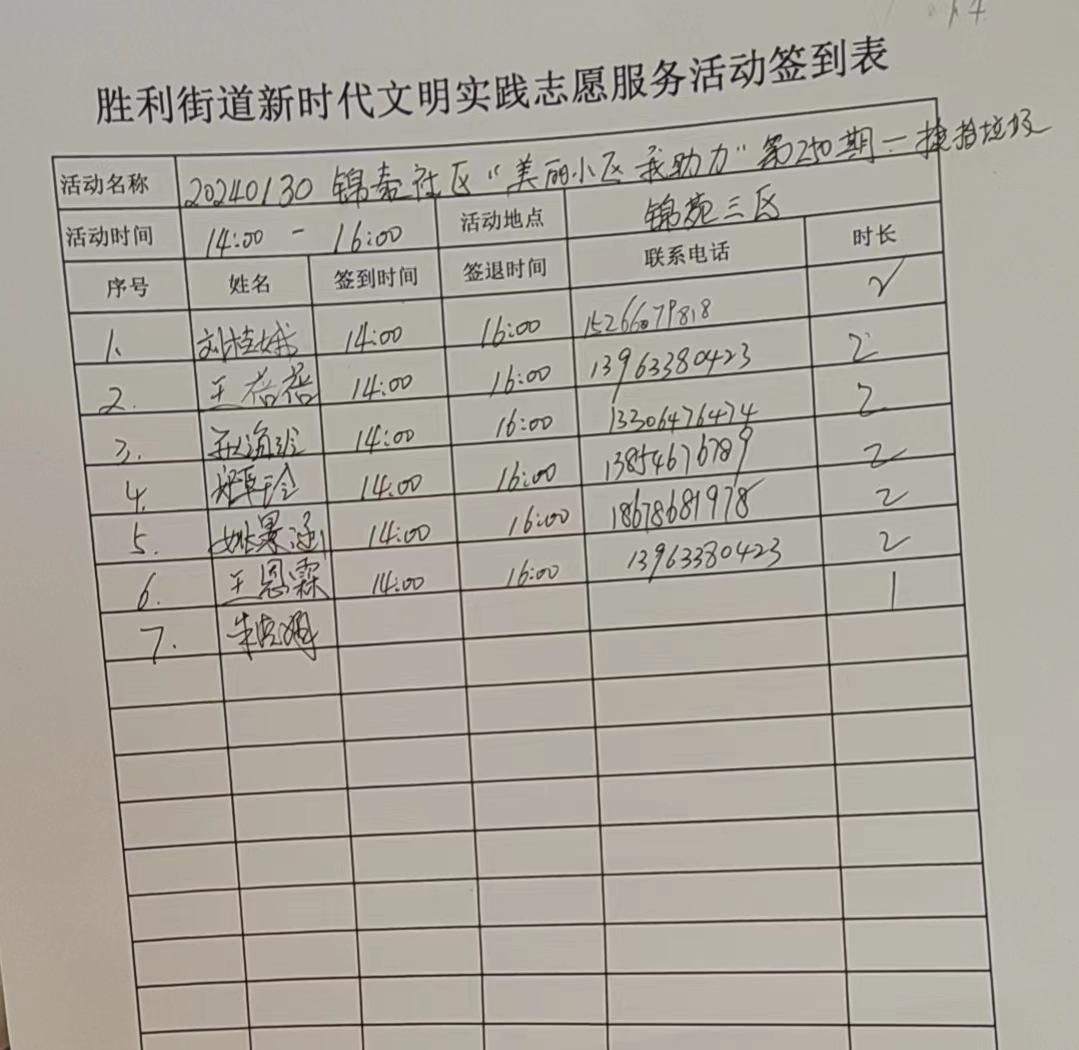 胜利街道新时代文明实践志愿服务活动签到表
活动名称 20240130 锦泰社区“美丽小区 我助力”第250期一捡拾垃圾
活动时间 14:00 - 16:00 活动地点 锦苑三区
序号 姓名 签到时间 签退时间 联系电话 时长
1. 刘桂娥 14:00 16:00 15266079818 2
2. 王蓓蓓 14:00 16:00 13963380423 2
3. 14:00 16:00 13306476474 2
4. 14:00 16:00 13854676789 2
5. 姚景涵 14:00 16:00 18678681978 2
6. 王恩霖 14:00 16:00 13963380423 2
7. 1